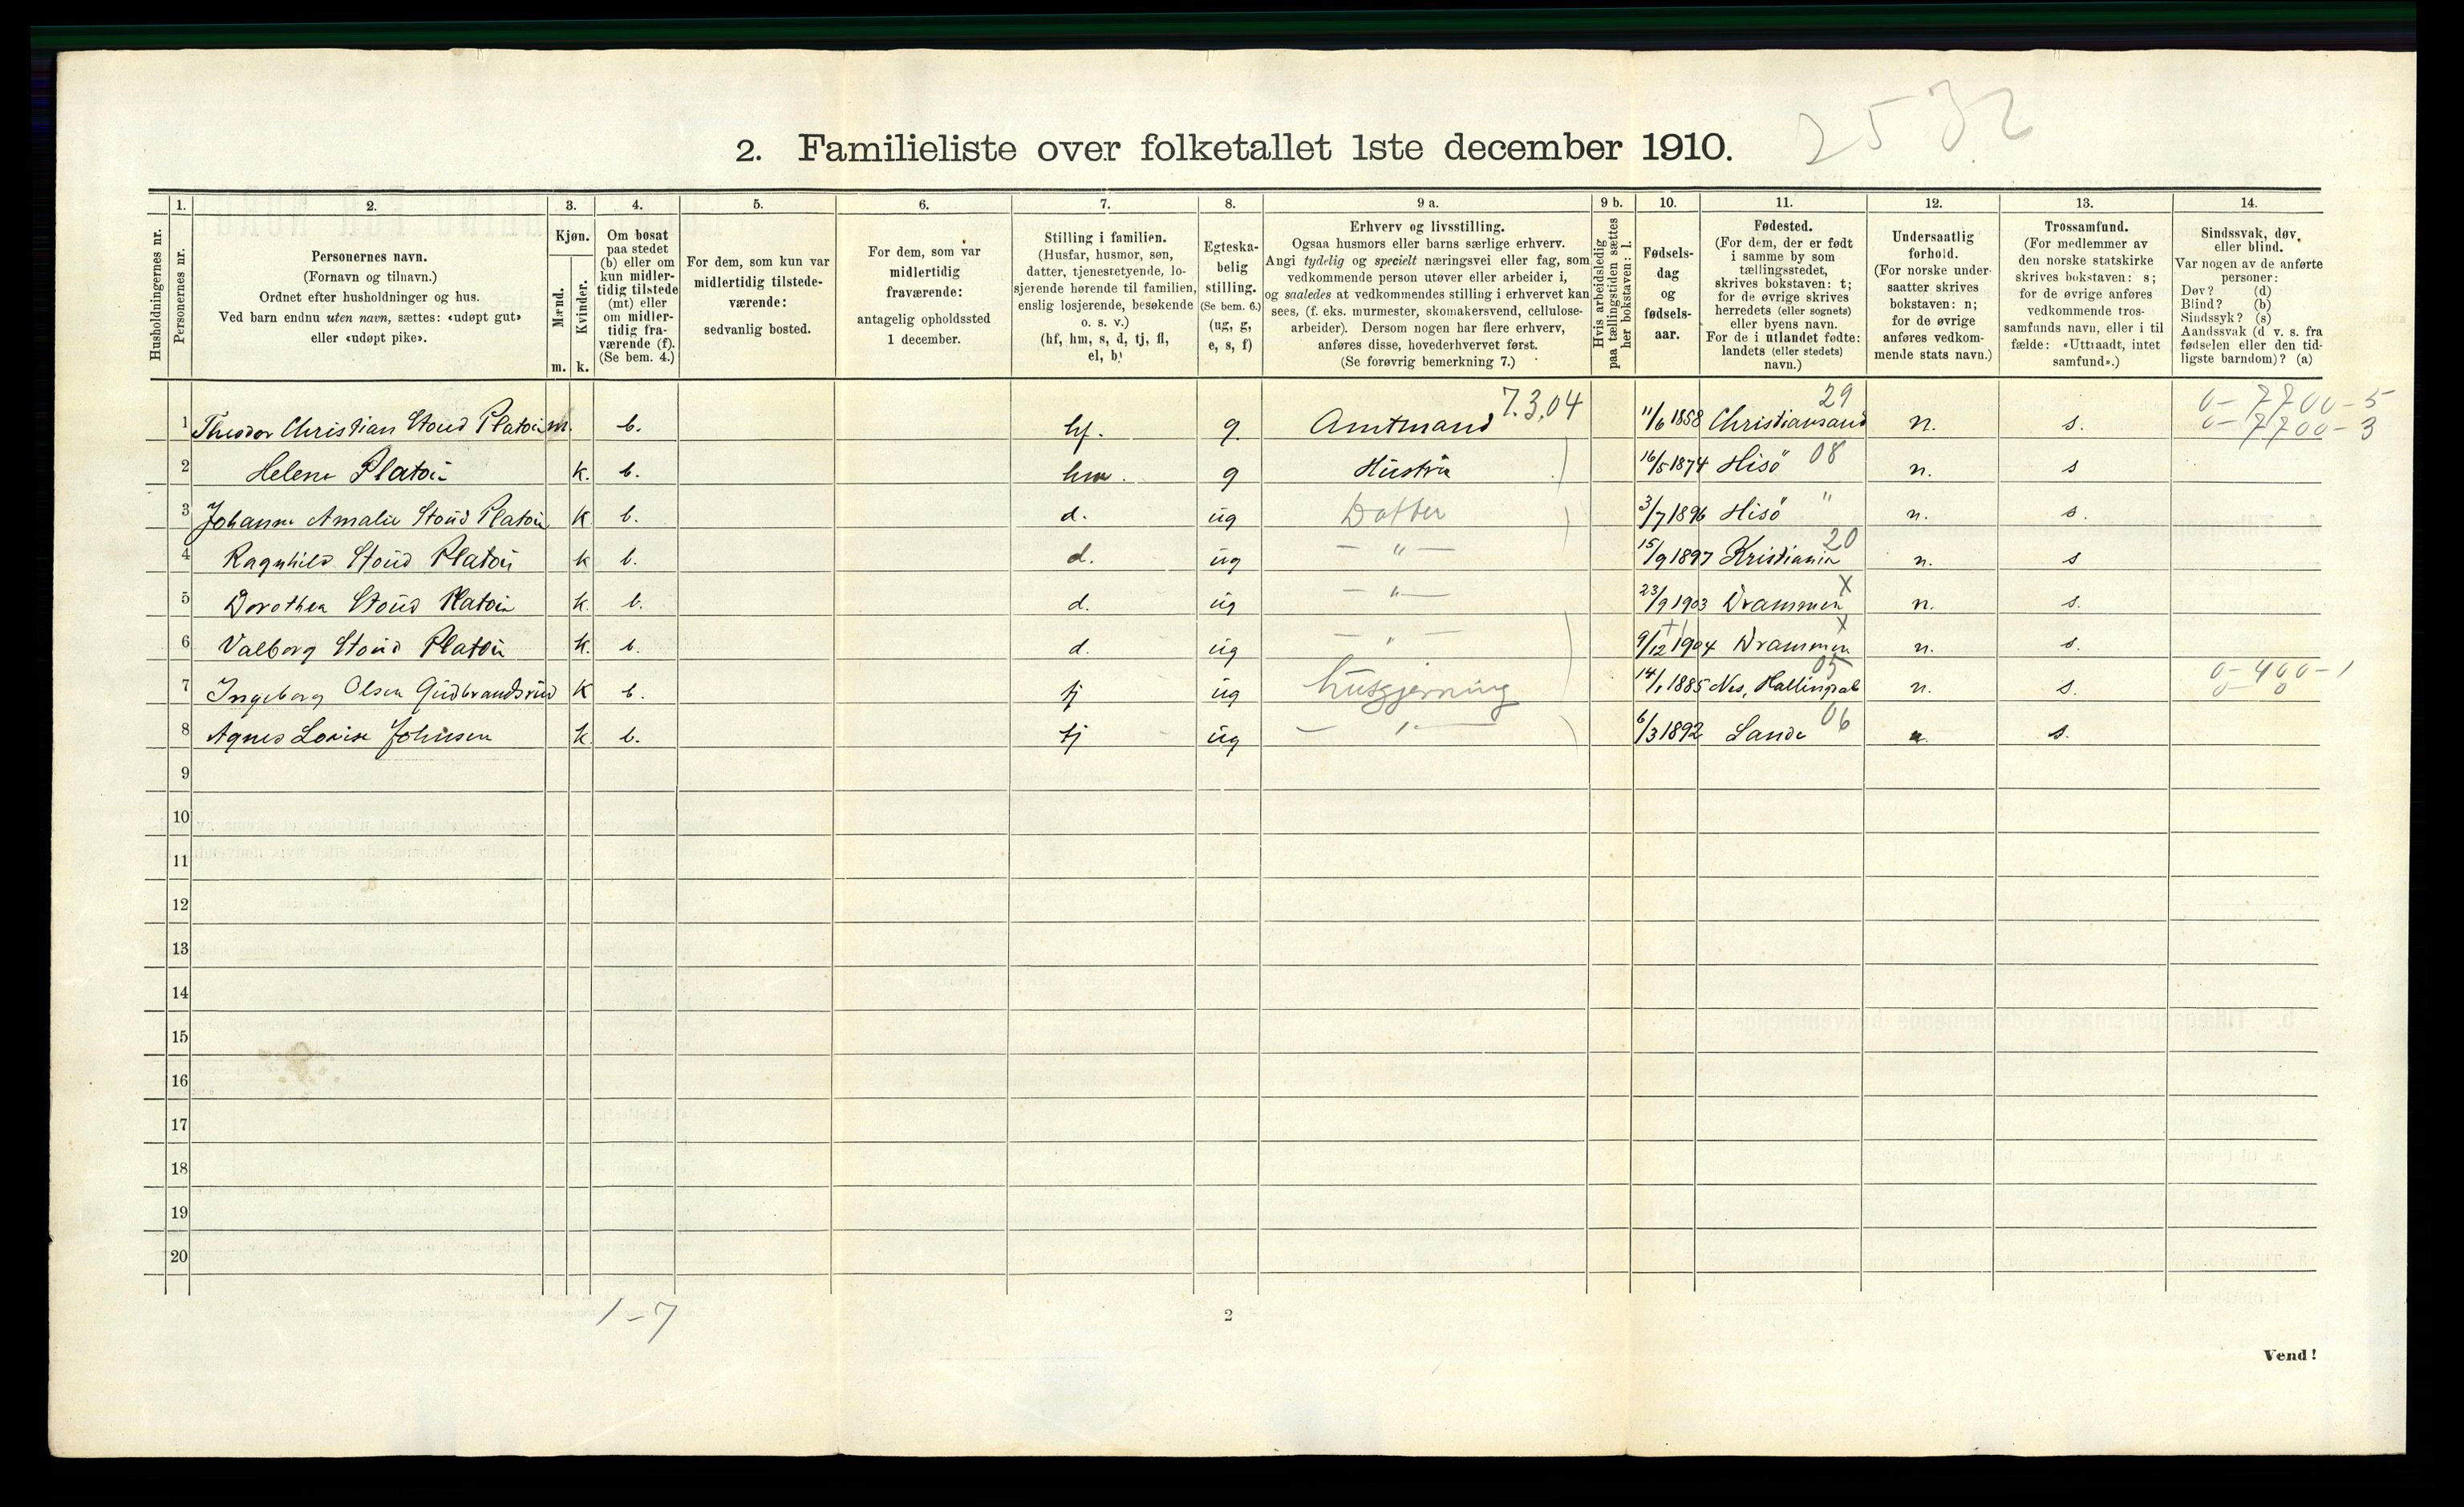 2532
2. Familieliste over folketallet 1ste december 1910.
1. 2. 3. 4. 5. 6. 7. 8. 9 a. 9 b. 10. 11. 12. 13. 14.
Husholdningernes nr.
Personernes nr.
Personernes navn.
(Fornavn og tilnavn.)
Ordnet efter husholdninger og hus.
Ved barn endnu uten navn, sættes: «udøpt gut»
eller «udøpt pike».
Kjøn.
Mænd.
Kvinder.
m. k.
Om bosat
paa stedet
(b) eller om
kun midler-
tidig tilstede
(mt) eller
om midler-
tidig fra-
værende (f).
(Se bem. 4.)
For dem, som kun var
midlertidig tilstede-
værende:
sedvanlig bosted.
For dem, som var
midlertidig
fraværende:
antagelig opholdssted
1 december.
Stilling i familien.
(Husfar, husmor, søn,
datter, tjenestetyende, lo-
sjerende hørende til familien,
enslig losjerende, besøkende
o. s. v.)
(hf, hm, s, d, tj, fl,
el, b)
Egteska-
belig
stilling.
(Se bem. 6.)
(ug, g,
e, s, f)
Erhverv og livsstilling.
Ogsaa husmors eller barns særlige erhverv.
Angi tydelig og specielt næringsvei eller fag, som
vedkommende person utøver eller arbeider i,
og saaledes at vedkommendes stilling i erhvervet kan
sees, (f. eks. murmester, skomakersvend, cellulose-
arbeider). Dersom nogen har flere erhverv,
anføres disse, hovederhvervet først.
(Se forøvrig bemerkning 7.)
Hvis arbeidsledig
paa tællingstiden sættes
her bokstaven: l.
Fødsels-
dag
og
fødsels-
aar.
Fødested.
(For dem, der er født
i samme by som
tællingsstedet,
skrives bokstaven: t;
for de øvrige skrives
herredets (eller sognets)
eller byens navn.
For de i utlandet fødte:
landets (eller stedets)
navn.)
Undersaatlig
forhold.
(For norske under-
saatter skrives
bokstaven: n;
for de øvrige
anføres vedkom-
mende stats navn.)
Trossamfund.
(For medlemmer av
den norske statskirke
skrives bokstaven: s;
for de øvrige anføres
vedkommende tros-
samfunds navn, eller i til
fælde: «Uttraadt, intet
samfund».)
Sindssvak, døv
eller blind.
Var nogen av de anførte
personer:
Døv? (d)
Blind? (b)
Sindssyk? (s)
Aandssvak (d v. s. fra
fødselen eller den tid-
ligste barndom)? (a)
7.3.04 29 0-7700-5
1 Theodor Christian Stoud Platou m. b. hf. g. Amtmand 11/6 1858 Christiansand n. s. 0-7700-3
2 Helene Platou k. b. hm. g Hustru 16/5 1874 Hisö 08 n. s
3 Johanne Amalie Stoud Platou k b. d. ug Datter 3/7 1896 Hisö " n. s.
4 Ragnhild Stoud Platou k b. d. ug — " — 15/9 1897 Kristiania 20 n. s
5 Dorothea Stoud Platou k. b. d. ug — " — 23/9 1903 Drammen x n. s.
6 Valborg Stoud Platou k. b. d. ug — " — 9/12 1904 Drammen x n. s.
7 Ingeborg Olsen Gudbrandsrud k b. tj ug husgjerning 14/1 1885 Nes, Hallingdal 05 n. s. 0-400-1
0- 0
8 Agnes Lovise Johnsen k. b. tj ug — " — 6/3 1892 Sande 06 n. s.
9
10
11
12
13
14
15
16
17
18
19
20
1-7
2
Vend!